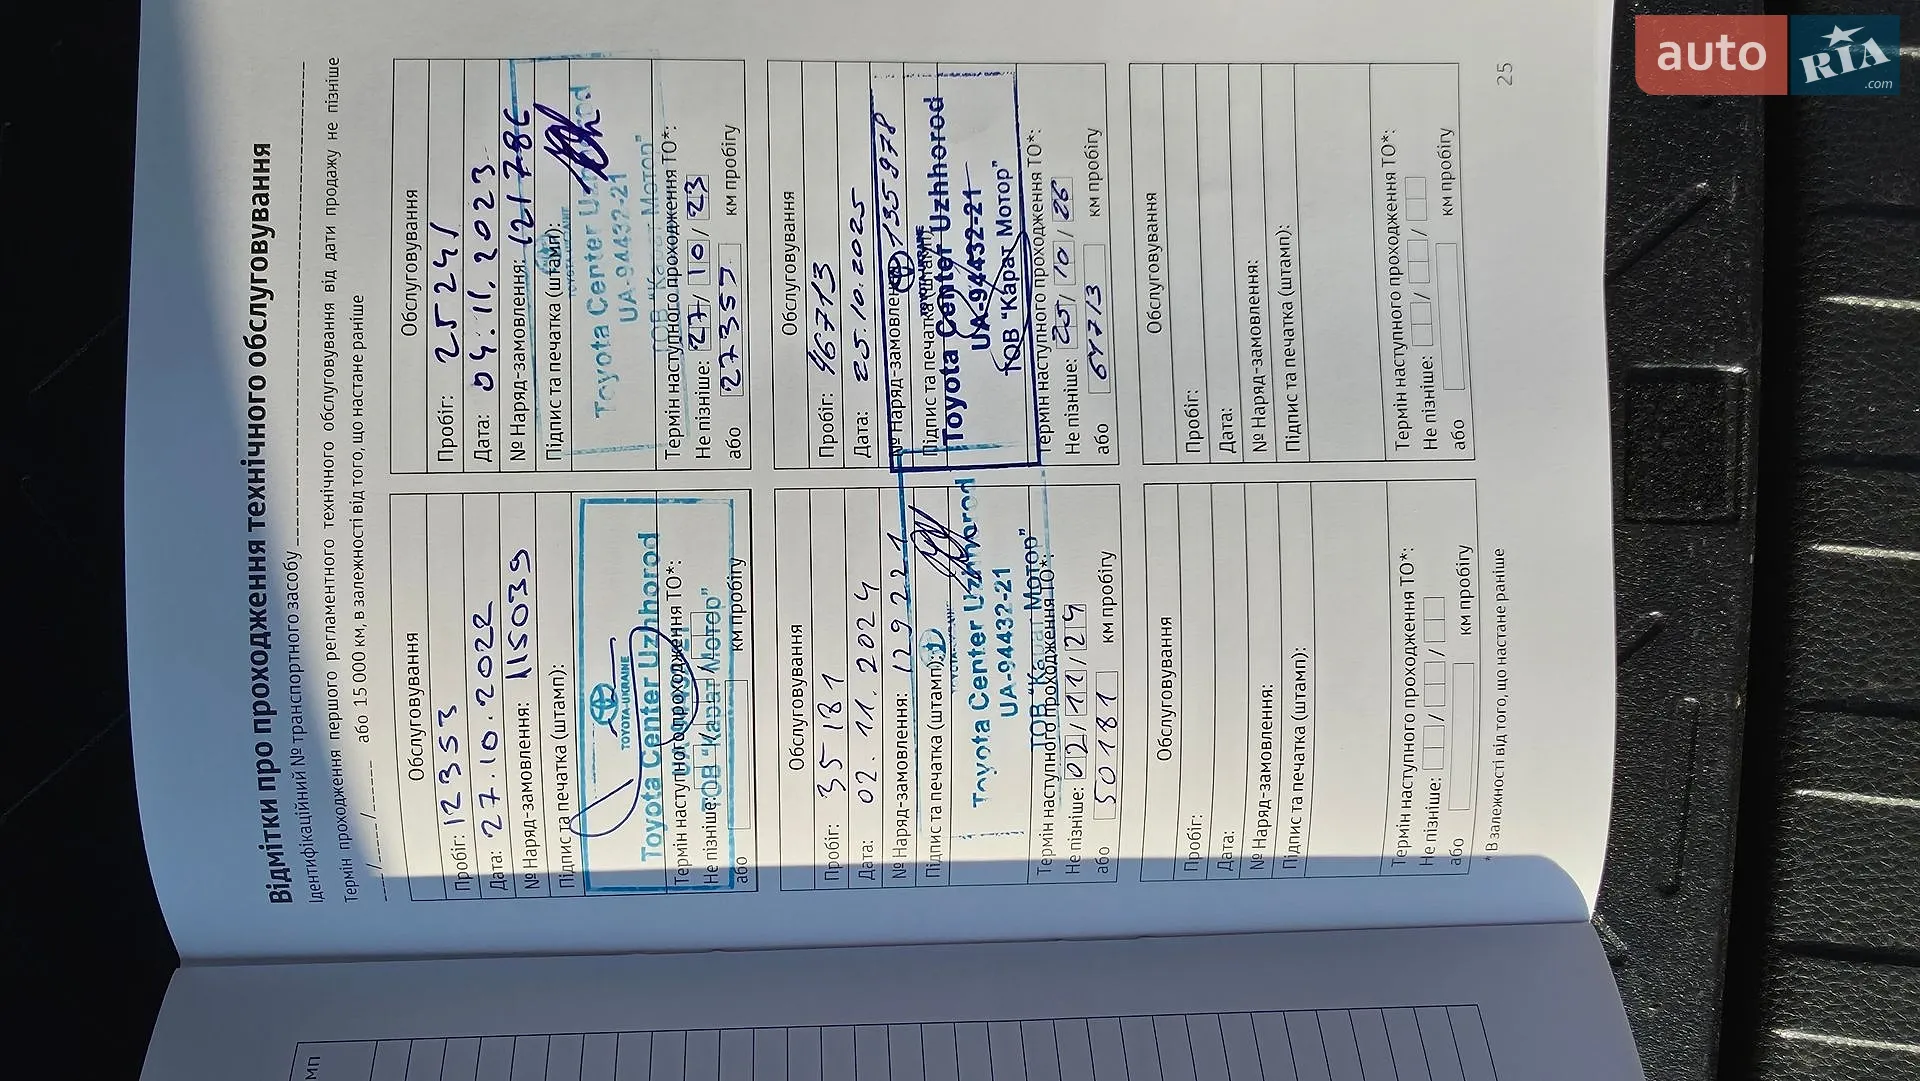 Відмітки про проходження технічного обслуговування
Ідентифікаційний № транспортного засобу
Термін проходження першого регламентного технічного обслуговування від дати продажу не пізніше
__/__/__ або 15 000 км, в залежності від того, що настане раніше
Обслуговування
Пробіг: 12353
Дата: 27.10.2022
№ Наряд-замовлення: 115039
Підпис та печатка (штамп):
TOYOTA-UKRAINE
Toyota Center Uzhhorod
ТОВ "Карат Мотор"
Термін наступного проходження ТО*:
Не пізніше:
або км пробігу
Обслуговування
Пробіг: 25241
Дата: 04.11.2023
№ Наряд-замовлення: 121786
Підпис та печатка (штамп):
Toyota Center Uzhhorod
UA-94432-21
ТОВ "Карат Мотор"
Термін наступного проходження ТО*:
Не пізніше: 27/10/23
або 27353 км пробігу
Обслуговування
Пробіг: 35181
Дата: 02.11.2024
№ Наряд-замовлення: 129221
Підпис та печатка (штамп):
Toyota Center Uzhhorod
UA-94432-21
ТОВ "Карат Мотор"
Термін наступного проходження ТО*:
Не пізніше: 02/11/24
або 50181 км пробігу
Обслуговування
Пробіг: 46713
Дата: 25.10.2025
№ Наряд-замовлення: 135978
Підпис та печатка (штамп):
Toyota Center Uzhhorod
UA-94432-21
ТОВ "Карат Мотор"
Термін наступного проходження ТО*:
Не пізніше: 25/10/26
або 61713 км пробігу
Обслуговування
Пробіг:
Дата:
№ Наряд-замовлення:
Підпис та печатка (штамп):
Термін наступного проходження ТО*:
Не пізніше:
або км пробігу
Обслуговування
Пробіг:
Дата:
№ Наряд-замовлення:
Підпис та печатка (штамп):
Термін наступного проходження ТО*:
Не пізніше:
або км пробігу
* В залежності від того, що настане раніше
25
МП
auto RIA .com